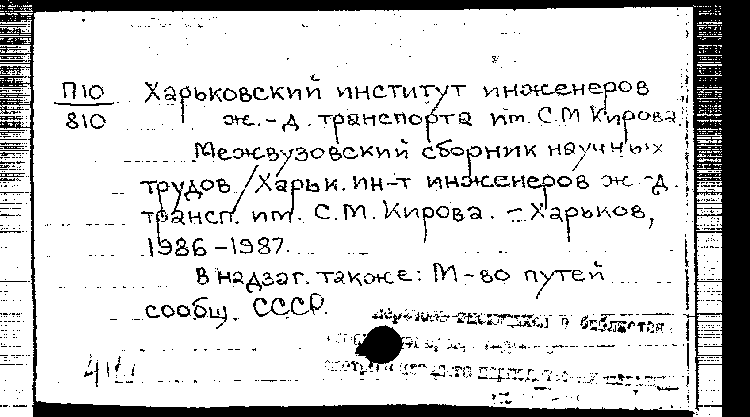 П10
810
Харьковский институт инженеров
ж.-д. транспорта им. С.М Кирова.
Межвузовский сборник научных
трудов / Харьк. ин-т инженеров ж.-д.
трансп. им. С.М. Кирова. – Харьков,
1986-1987.
В надзаг. также: М-во путей
сообщ. СССР.
в библиотеке